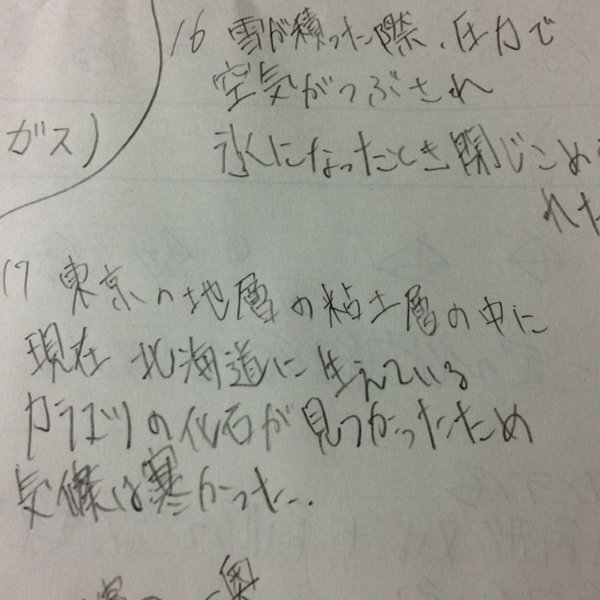 16 雪が積った際、圧力で
空気がつぶされ
ガス)
氷になったとき閉じこめら
れた
17 東京の地層の粘土層の中に
現在 北海道に生えている
カラマツの化石が見つかったため
気候は寒かった.
奥